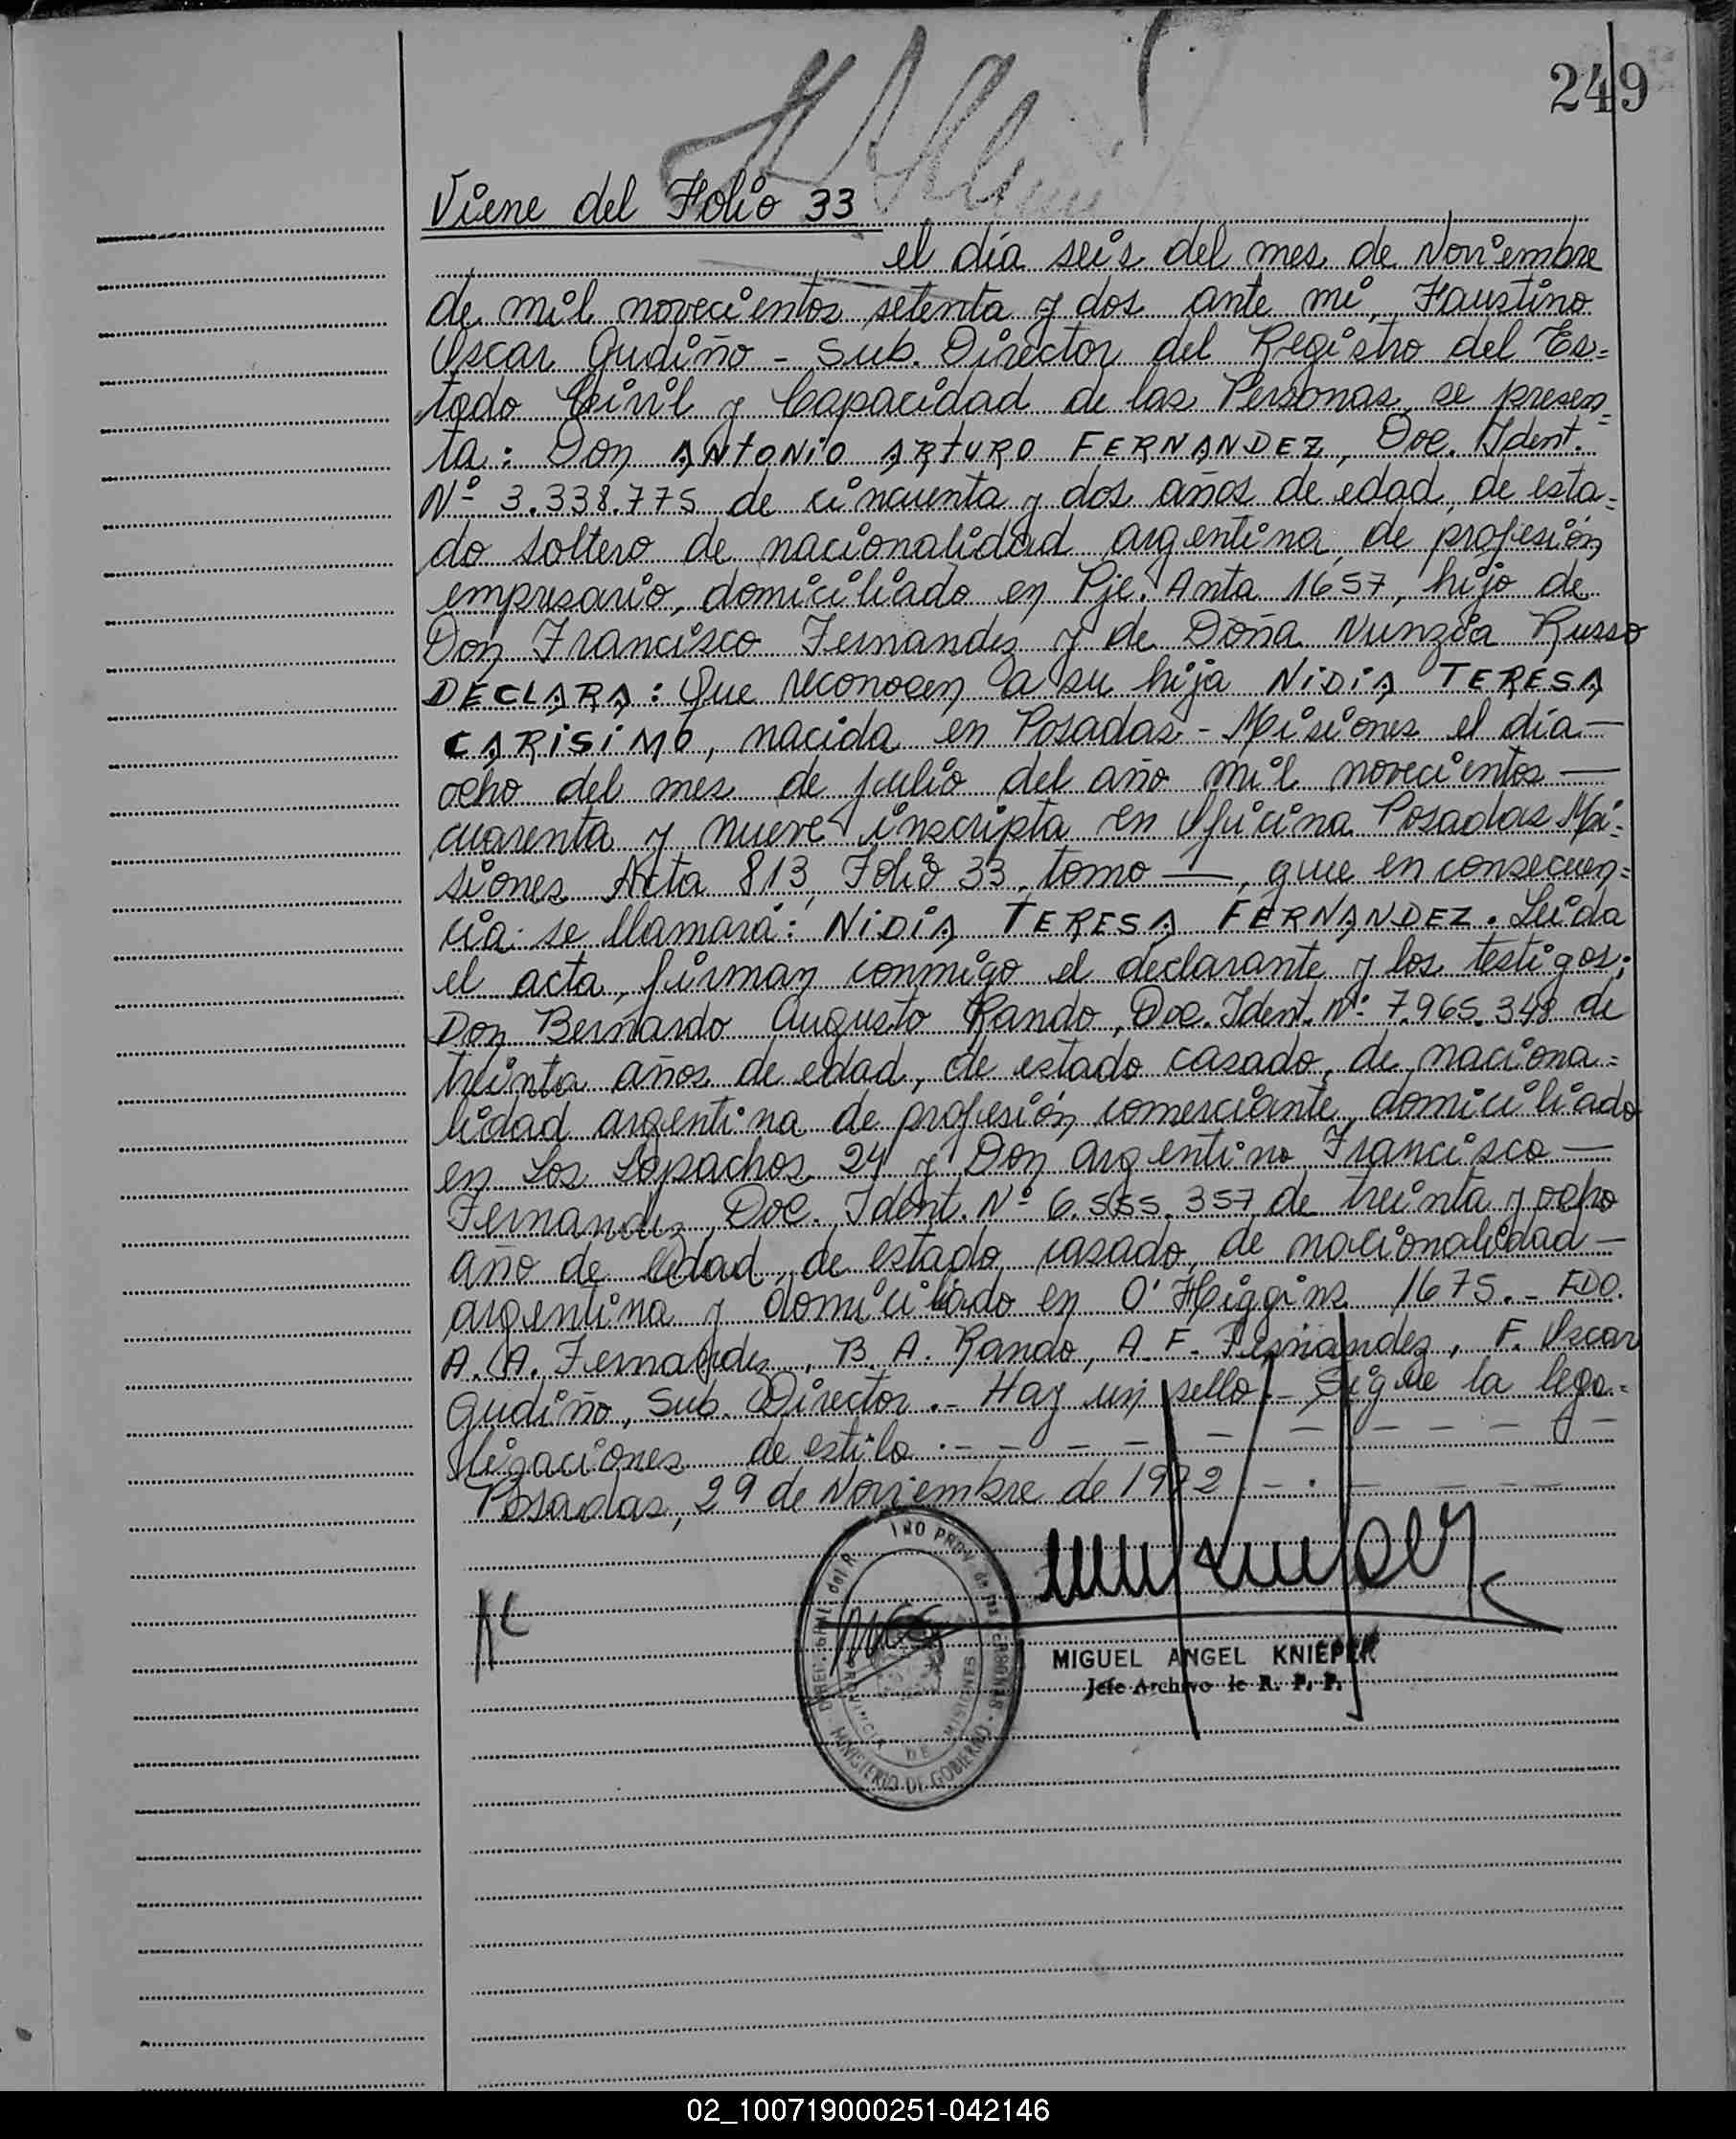 249
Viene del Folio 33
el día seis del mes de Noviembre
de mil novecientos setenta y dos ante mi, Faustino
Oscar Gudiño - Sub. Director del Registro del Es=
tado Civil y Capacidad de las Personas, se presen=
ta: Don ANTONIO ARTURO FERNANDEZ, Doc. Ident.
Nº 3.338.775 de cincuenta y dos años de edad, de esta=
do soltero de nacionalidad argentina, de profesión
empresario, domiciliado en Pje. Anta 1657, hijo de
Don Francisco Fernandez y de Doña Nunzia Russo
DECLARA: Que reconocen a su hija NIDIA TERESA
CARISIMO, nacida en Posadas - Misiones el día —
ocho del mes de julio del año mil novecientos —
cuarenta y nueve inscripta en Oficina Posadas Mi=
siones Acta 813, Folio 33, tomo —, que en consecuen=
cia se llamará: NIDIA TERESA FERNANDEZ. Leida
el acta, firman conmigo el declarante y los testigos:
Don Bernardo Augusto Rando, Doc. Ident. Nº 7.965.348 de
treinta años de edad, de estado casado, de naciona=
lidad argentina de profesión comerciante, domiciliado
en Los Lapachos 24 y Don Argentino Francisco —
Fernandez, Doc. Ident. Nº 6.555.357 de treinta y ocho
año de edad, de estado casado, de nacionalidad —
argentina y domiciliado en O'Higgins 1675. - FDO.
A. A. Fernandez, B. A. Rando, A. F. Fernandez, F. Oscar
Gudiño, Sub. Director. - Hay un sello. - Sigue la lega=
lizaciones de estilo. - - - - - - - - - -
Posadas, 29 de Noviembre de 1972. - . - - - -
MIGUEL ANGEL KNIEPER
Jefe Archivo de R. P. P.
PROVINCIA DE MISIONES
MINISTERIO DE GOBIERNO
02_100719000251-042146